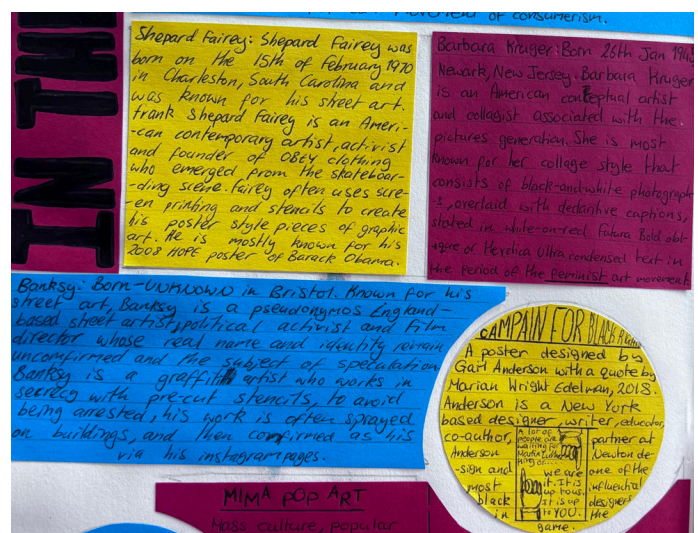 movement of consumerism.
IN TH
Shepard Fairey: Shepard Fairey was
born on the 15th of February 1970
in Charleston, South Carolina and
was known for his street art.
frank Shepard Fairey is an Ameri-
-can contemporary artist, activist
and founder of OBEY clothing
who emerged from the skateboar-
-ding scene. Fairey often uses scre-
-en printing and stencils to create
his poster style pieces of graphic
art. He is mostly known for his
2008 HOPE poster of Barack Obama.
Barbara Kruger: Born 26th Jan 194
Newark, New Jersey. Barbara Kruger
is an American conceptual artist
and collagist associated with the
pictures generation. She is most
known for her collage style that
consists of black-and-white photograph-
-s, overlaid with declarative captions,
stated in white-on-red Futura Bold obl-
-ique of Helvetica Ultra condensed text in
the period of the feminist art movement
Banksy: Born - UNKNOWN in Bristol. Known for his
street art, Banksy is a pseudonymos England-
based street artist, political activist and film
director whose real name and identity remain
uncomfirmed and the subject of speculation.
Banksy is a graffiti artist who works in
secrecy with pre-cut stencils, to avoid
being arrested, his work is often sprayed
on buildings, and then comfirmed as his
via his instagram pages.
CAMPAIN FOR BLACK
A poster designed by
Gail Anderson with a quote by
Marian Wright Edelman, 2018.
Anderson is a New York
based designer, writer, educator,
co-author, partner at
Anderson Newton de-
-sign and one of the
most influential
black designers
in the
game.
A lot of
people are
waiting for
Martin Luther
King or...
we are
it. It is
up to us.
It is up
to YOU.
MIMA POP ART
Mass culture, popular